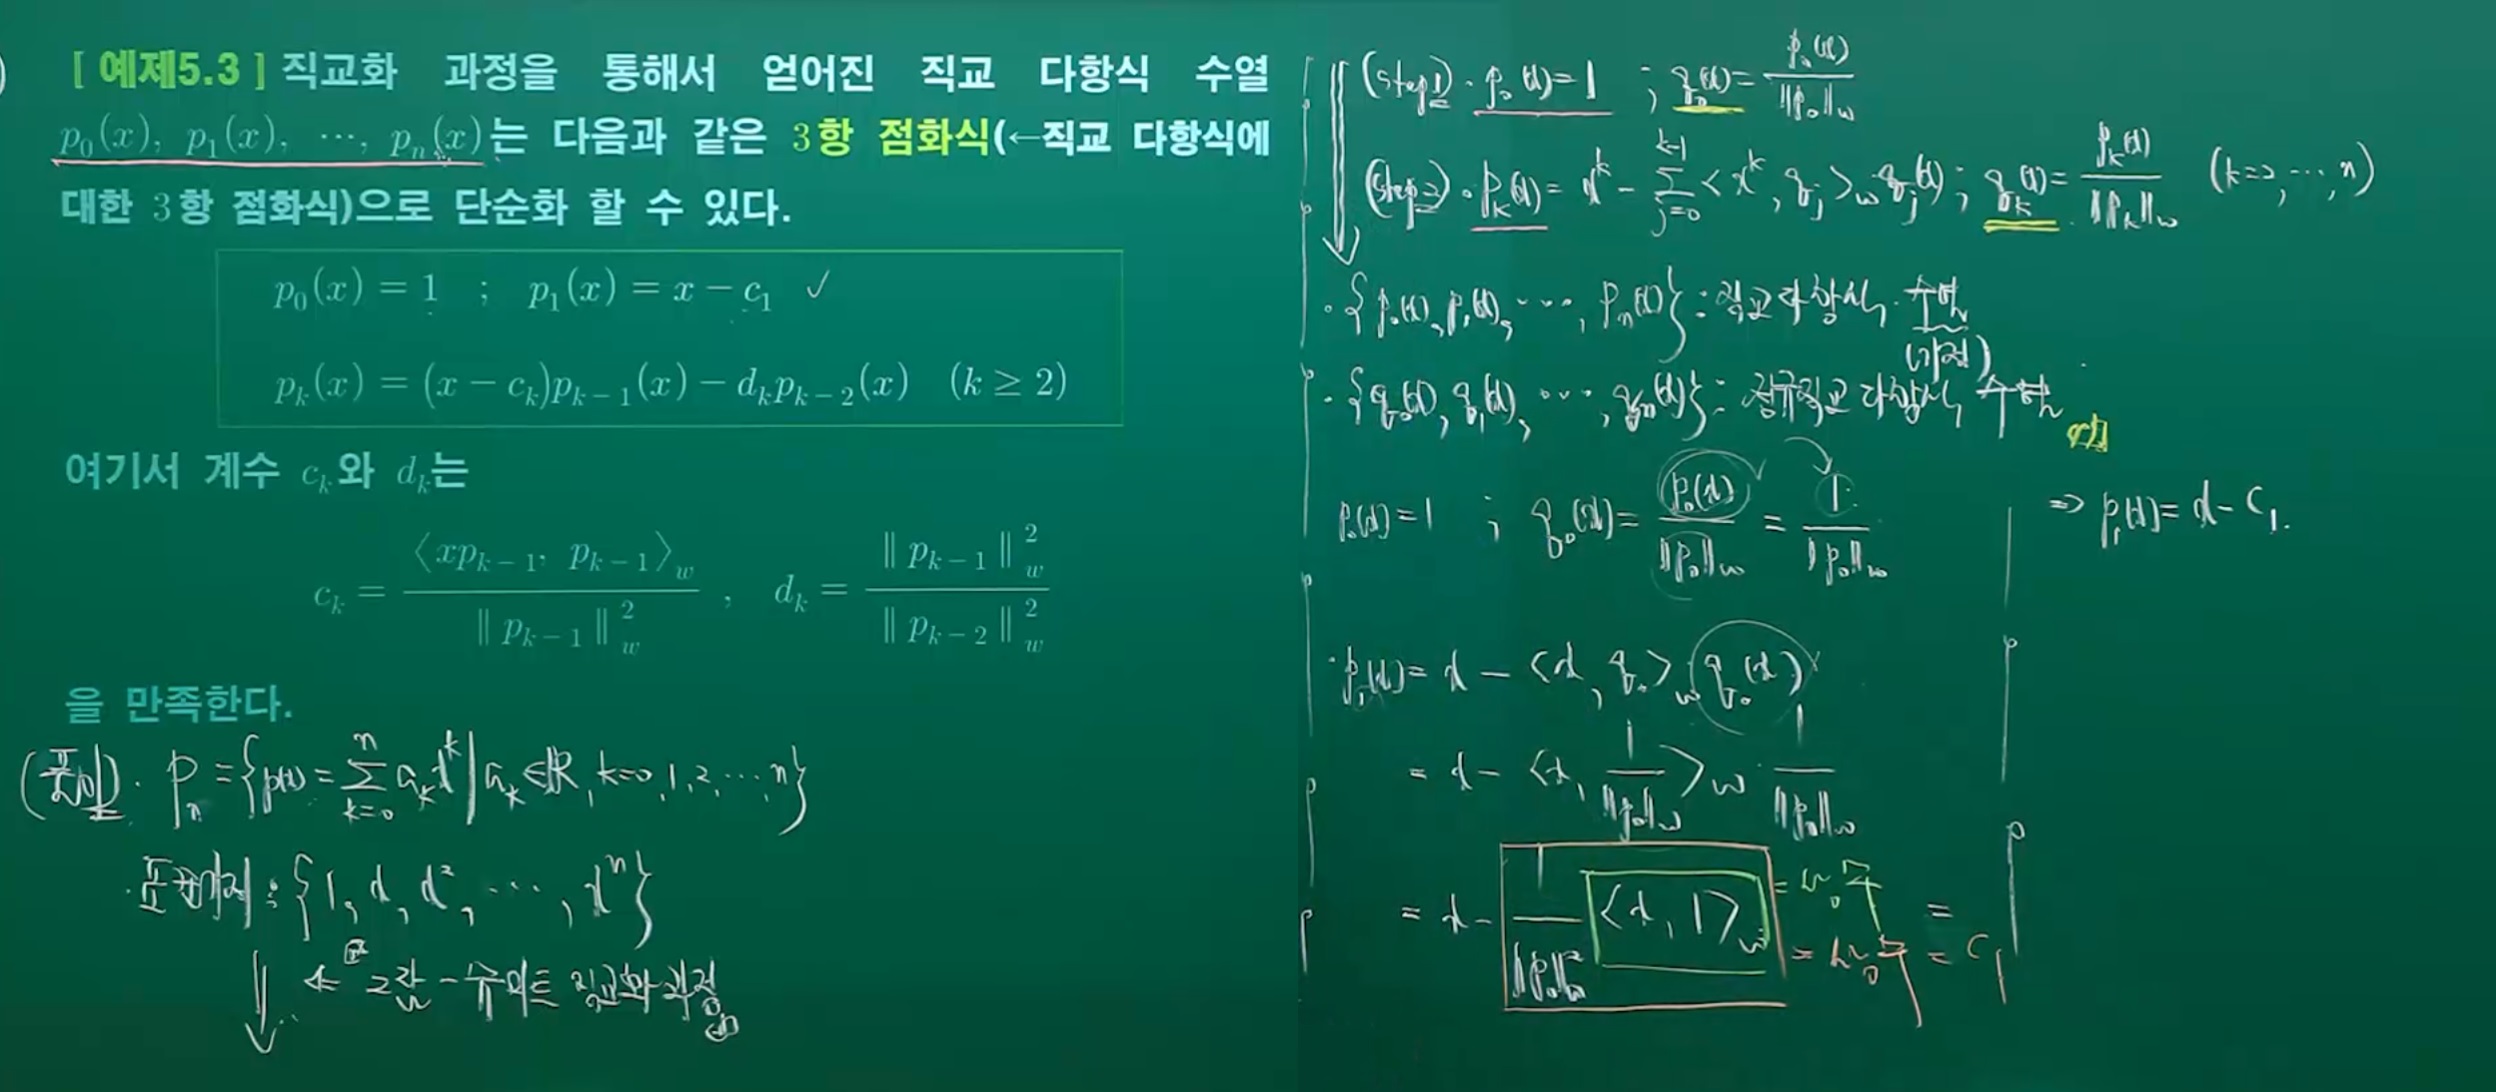 [ 예제5.3 ] 직교화 과정을 통해서 얻어진 직교 다항식 수열
p₀(x), p₁(x), ⋯, pₙ(x)는 다음과 같은 3항 점화식(←직교 다항식에
대한 3항 점화식)으로 단순화 할 수 있다.
p₀(x) = 1 ; p₁(x) = x − c₁ ✓
pₖ(x) = (x − cₖ)pₖ₋₁(x) − dₖpₖ₋₂(x) (k ≥ 2)
여기서 계수 cₖ와 dₖ는
cₖ = ⟨xpₖ₋₁, pₖ₋₁⟩_w / ‖pₖ₋₁‖²_w , dₖ = ‖pₖ₋₁‖²_w / ‖pₖ₋₂‖²_w
을 만족한다.
(풀이) · Pₙ = {p(x) = Σ_{k=0}^{n} aₖxᵏ | aₖ ∈ ℝ, k=0, 1, 2, ⋯, n}
· 표준기저 : {1, x, x², ⋯, xⁿ}
⇓ ← 그람-슈미트 직교화 과정
(step1) · p₀(x) = 1 ; q₀(x) = p₀(x) / ‖p₀‖_w
(step2) · pₖ(x) = xᵏ − Σ_{j=0}^{k-1} <xᵏ, qⱼ>_w qⱼ(x) ; qₖ(x) = pₖ(x) / ‖pₖ‖_w (k=2, ⋯, n)
· {p₀(x), p₁(x), ⋯, pₙ(x)} : 직교 다항식 수열
(가정)
· {q₀(x), q₁(x), ⋯, qₙ(x)} : 정규직교 다항식 수열
p₀(x) = 1 ; q₀(x) = p₀(x) / ‖p₀‖_w = 1 / ‖p₀‖_w
· p₁(x) = x − <x, q₀>_w q₀(x)
= x − <x, 1/‖p₀‖_w>_w · 1/‖p₀‖_w
= x − 1/‖p₀‖²_w <x, 1>_w = 상수 =
= 상수 = c₁
⇒ p₁(x) = x − c₁.